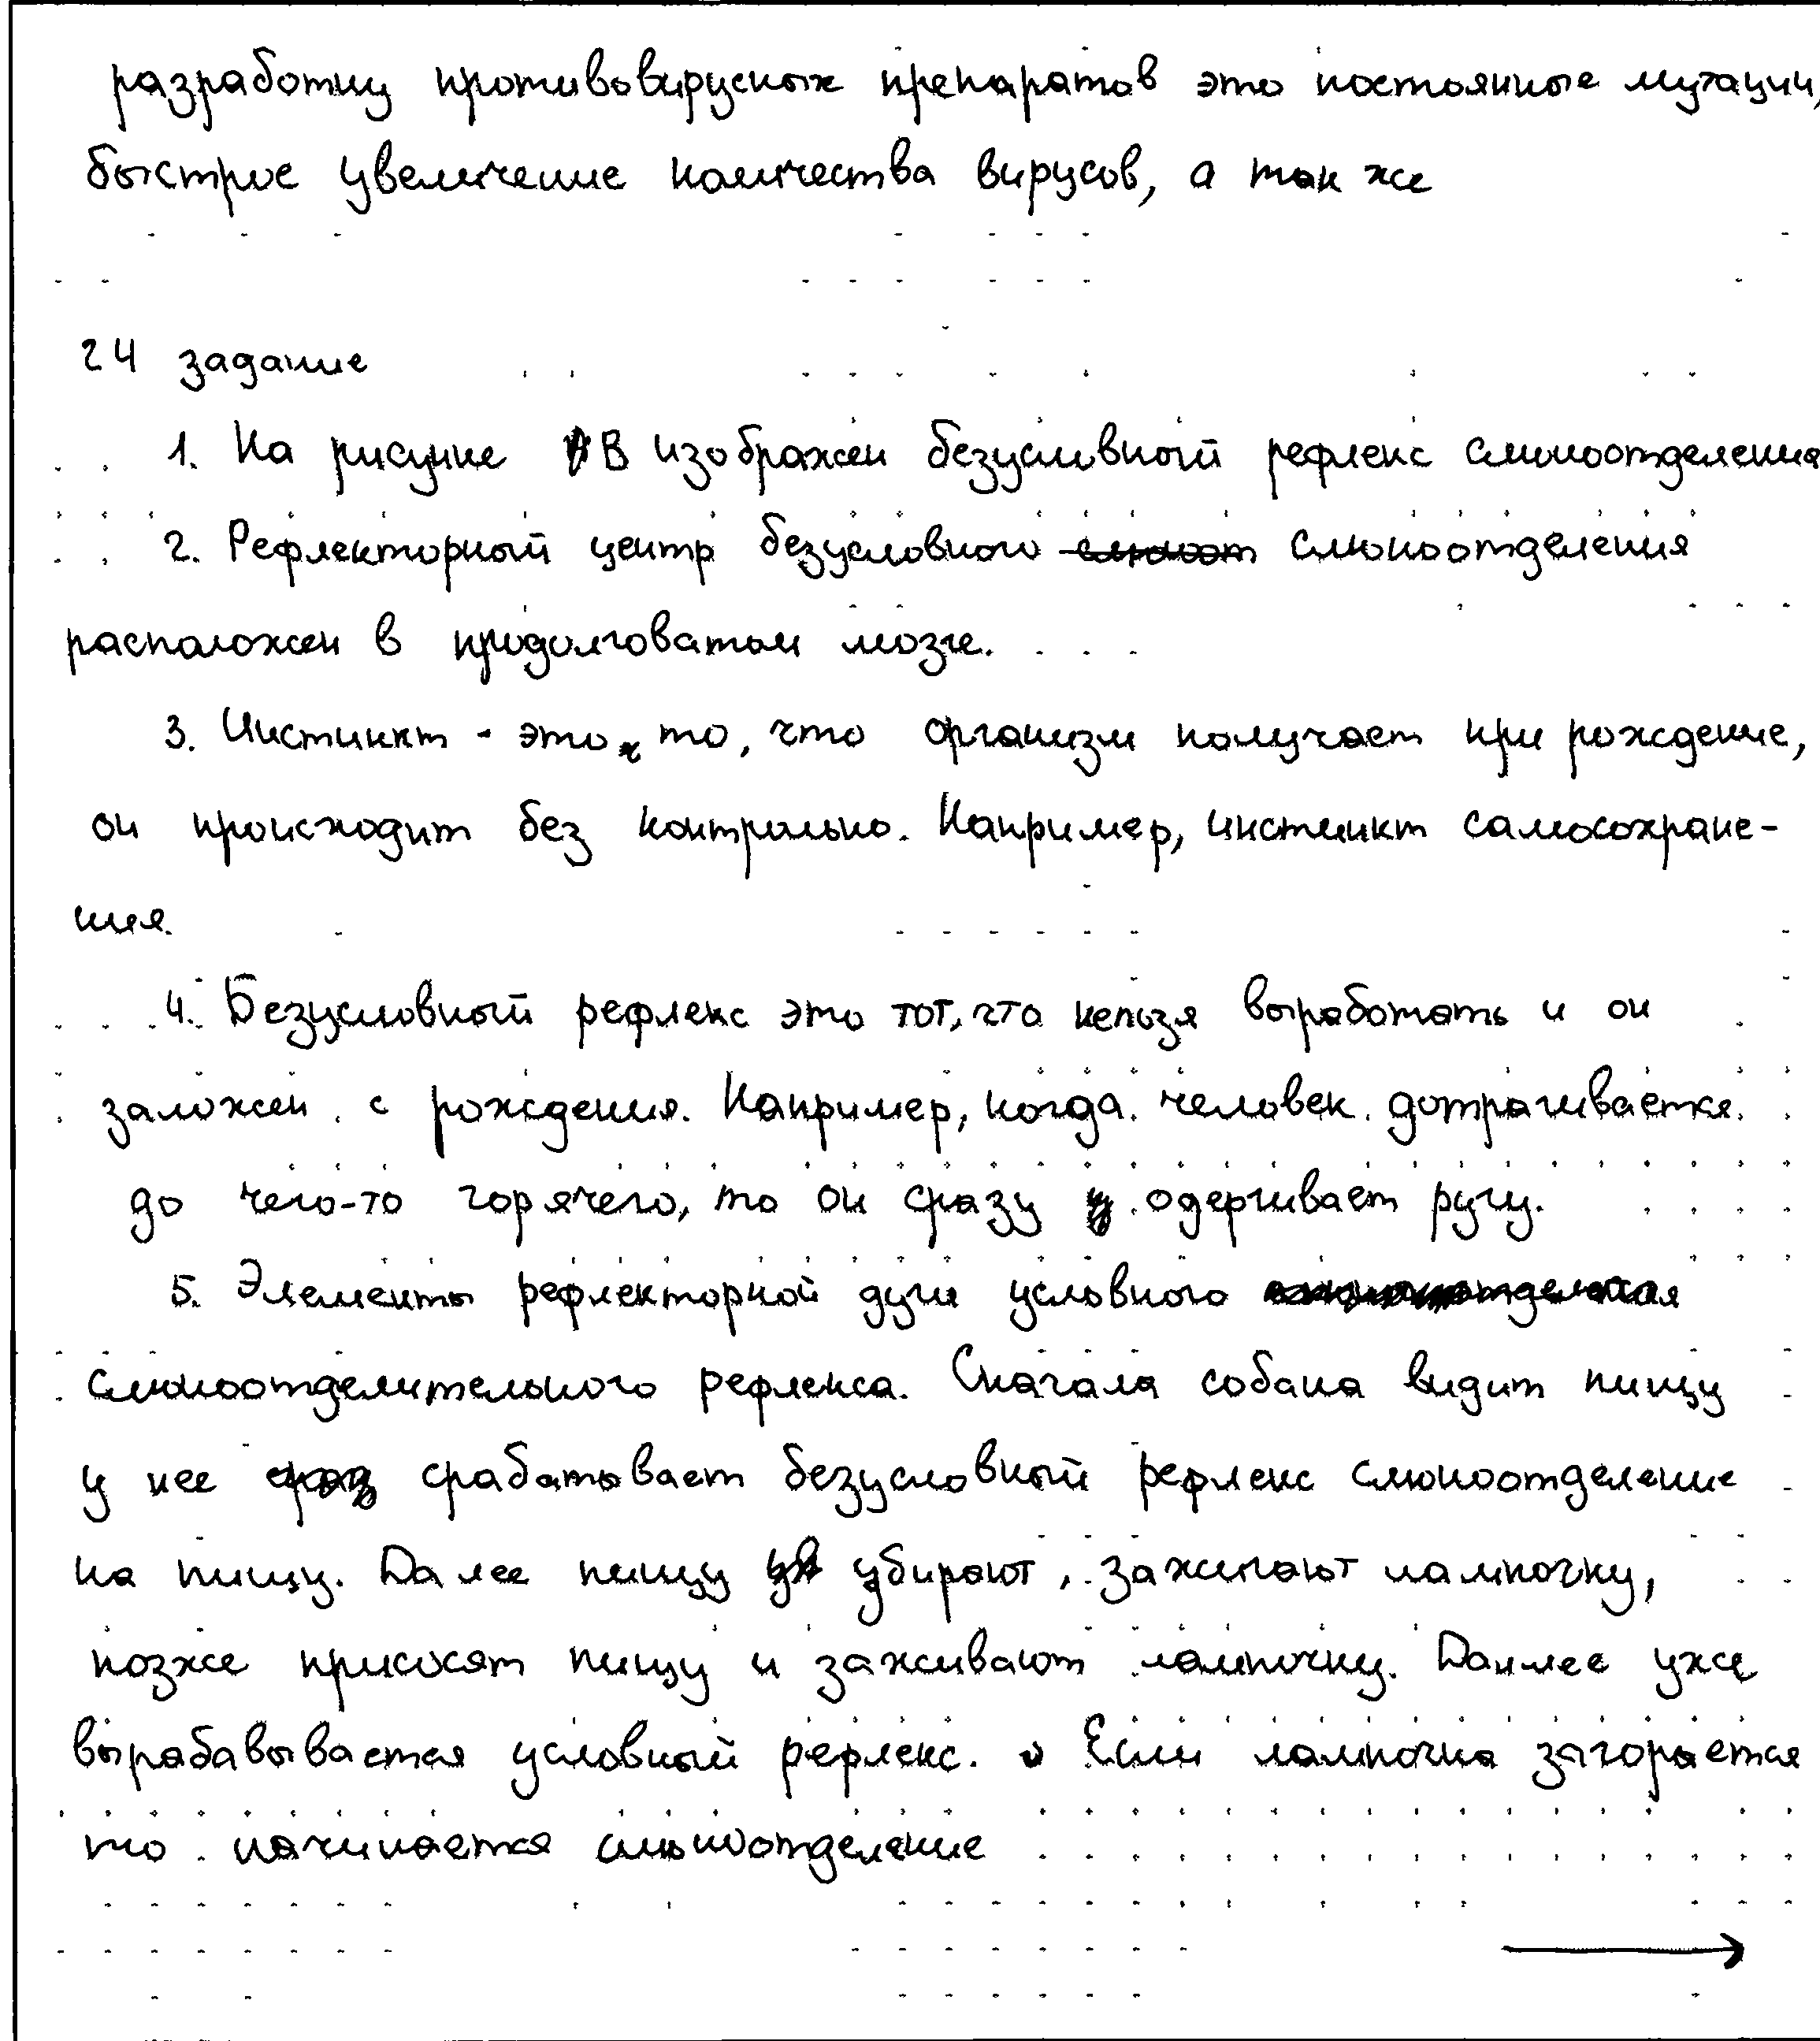 разработку противовирусных препаратов это постоянные мутации,
быстрое увеличение количества вирусов, а так же
24 задание
1. На рисунке В изображен безусловный рефлекс слюноотделения
2. Рефлекторный центр безусловного слюноотделения
расположен в продолговатом мозге.
3. Инстинкт - это то, что организм получает при рождение,
он происходит без контрольно. Например, инстинкт самосохране-
ния.
4. Безусловный рефлекс это тот, что нельзя выработать и он
заложен с рождения. Например, когда человек дотрагивается
до чего-то горячего, то он сразу одергивает ругу.
5. Элементы рефлекторной дуги условного
слюноотделительного рефлекса. Сначала собака видит пищу
у нее срабатывает безусловный рефлекс слюноотделение
на пищу. Далее пищу убирают, зажигают лампочку,
позже приносят пищу и заживают лампочку. Даллее уже
вырабавывается условный рефлекс. Если лампочка загорается
то начинается слюноотделение